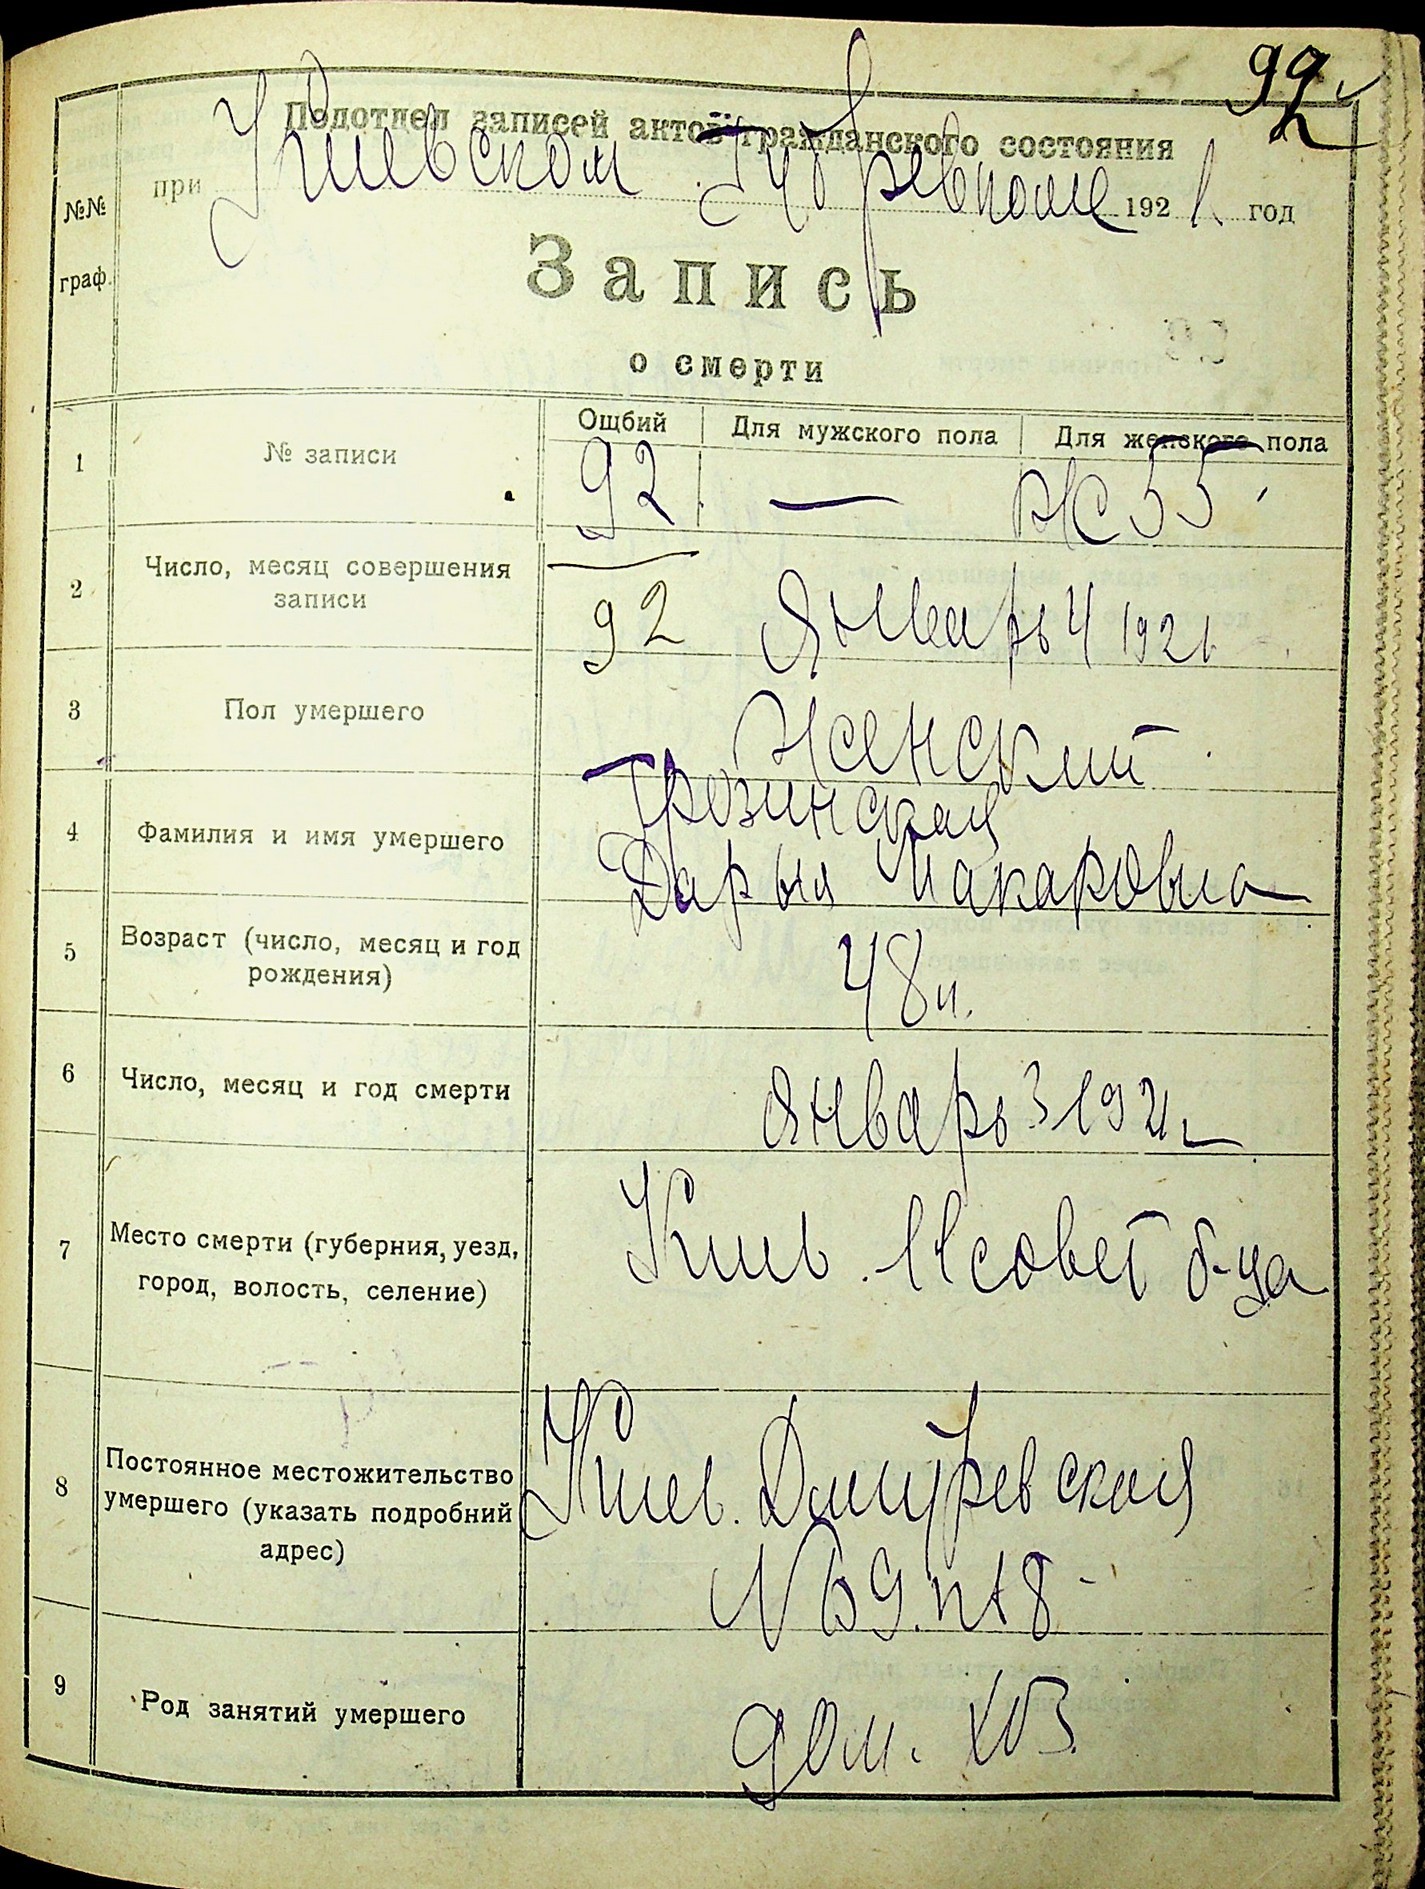 92
Подотдел записей актов гражданского состояния
при Киевском Губревкоме 1921 год
№№ граф.
Запись
о смерти
Ощбий Для мужского пола Для женского пола
1 № записи 92 — Ж 55
2 Число, месяц совершения
записи
92 Январь 4 1921
3 Пол умершего Женский
4 Фамилия и имя умершего
Грозинская
Дарья Макаровна
5 Возраст (число, месяц и год
рождения)
48 л.
6 Число, месяц и год смерти январь 3 1921
7 Место смерти (губерния, уезд,
город, волость, селение)
Киев. совет б-ца
8 Постоянное местожительство
умершего (указать подробний
адрес)
Киев. Дмитревская
№ 69
9 Род занятий умершего дом. хоз.